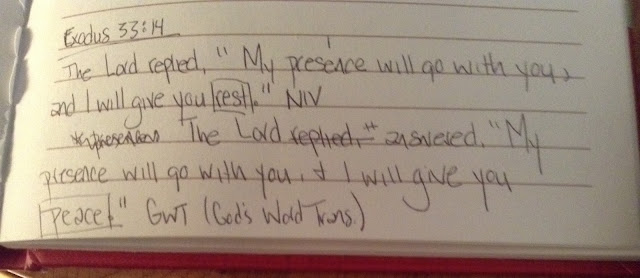 Exodus 33:14
The Lord replied, "My presence will go with you,
and I will give you rest." NIV
"The Lord replied, answered, "My
presence will go with you, & I will give you
peace." GWT (God's Word Trans.)